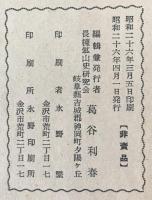 昭和二十六年三月五日印刷
昭和二十六年四月一日発行
【非賣品】
編輯兼発行者 葛谷利春
長棟鉱山史研究会
岐阜縣吉城郡神岡町夕陽ヶ丘
印刷者 永野 
金沢市荒町二丁目一七
印刷所 永野印刷所
金沢市荒町二丁目一七